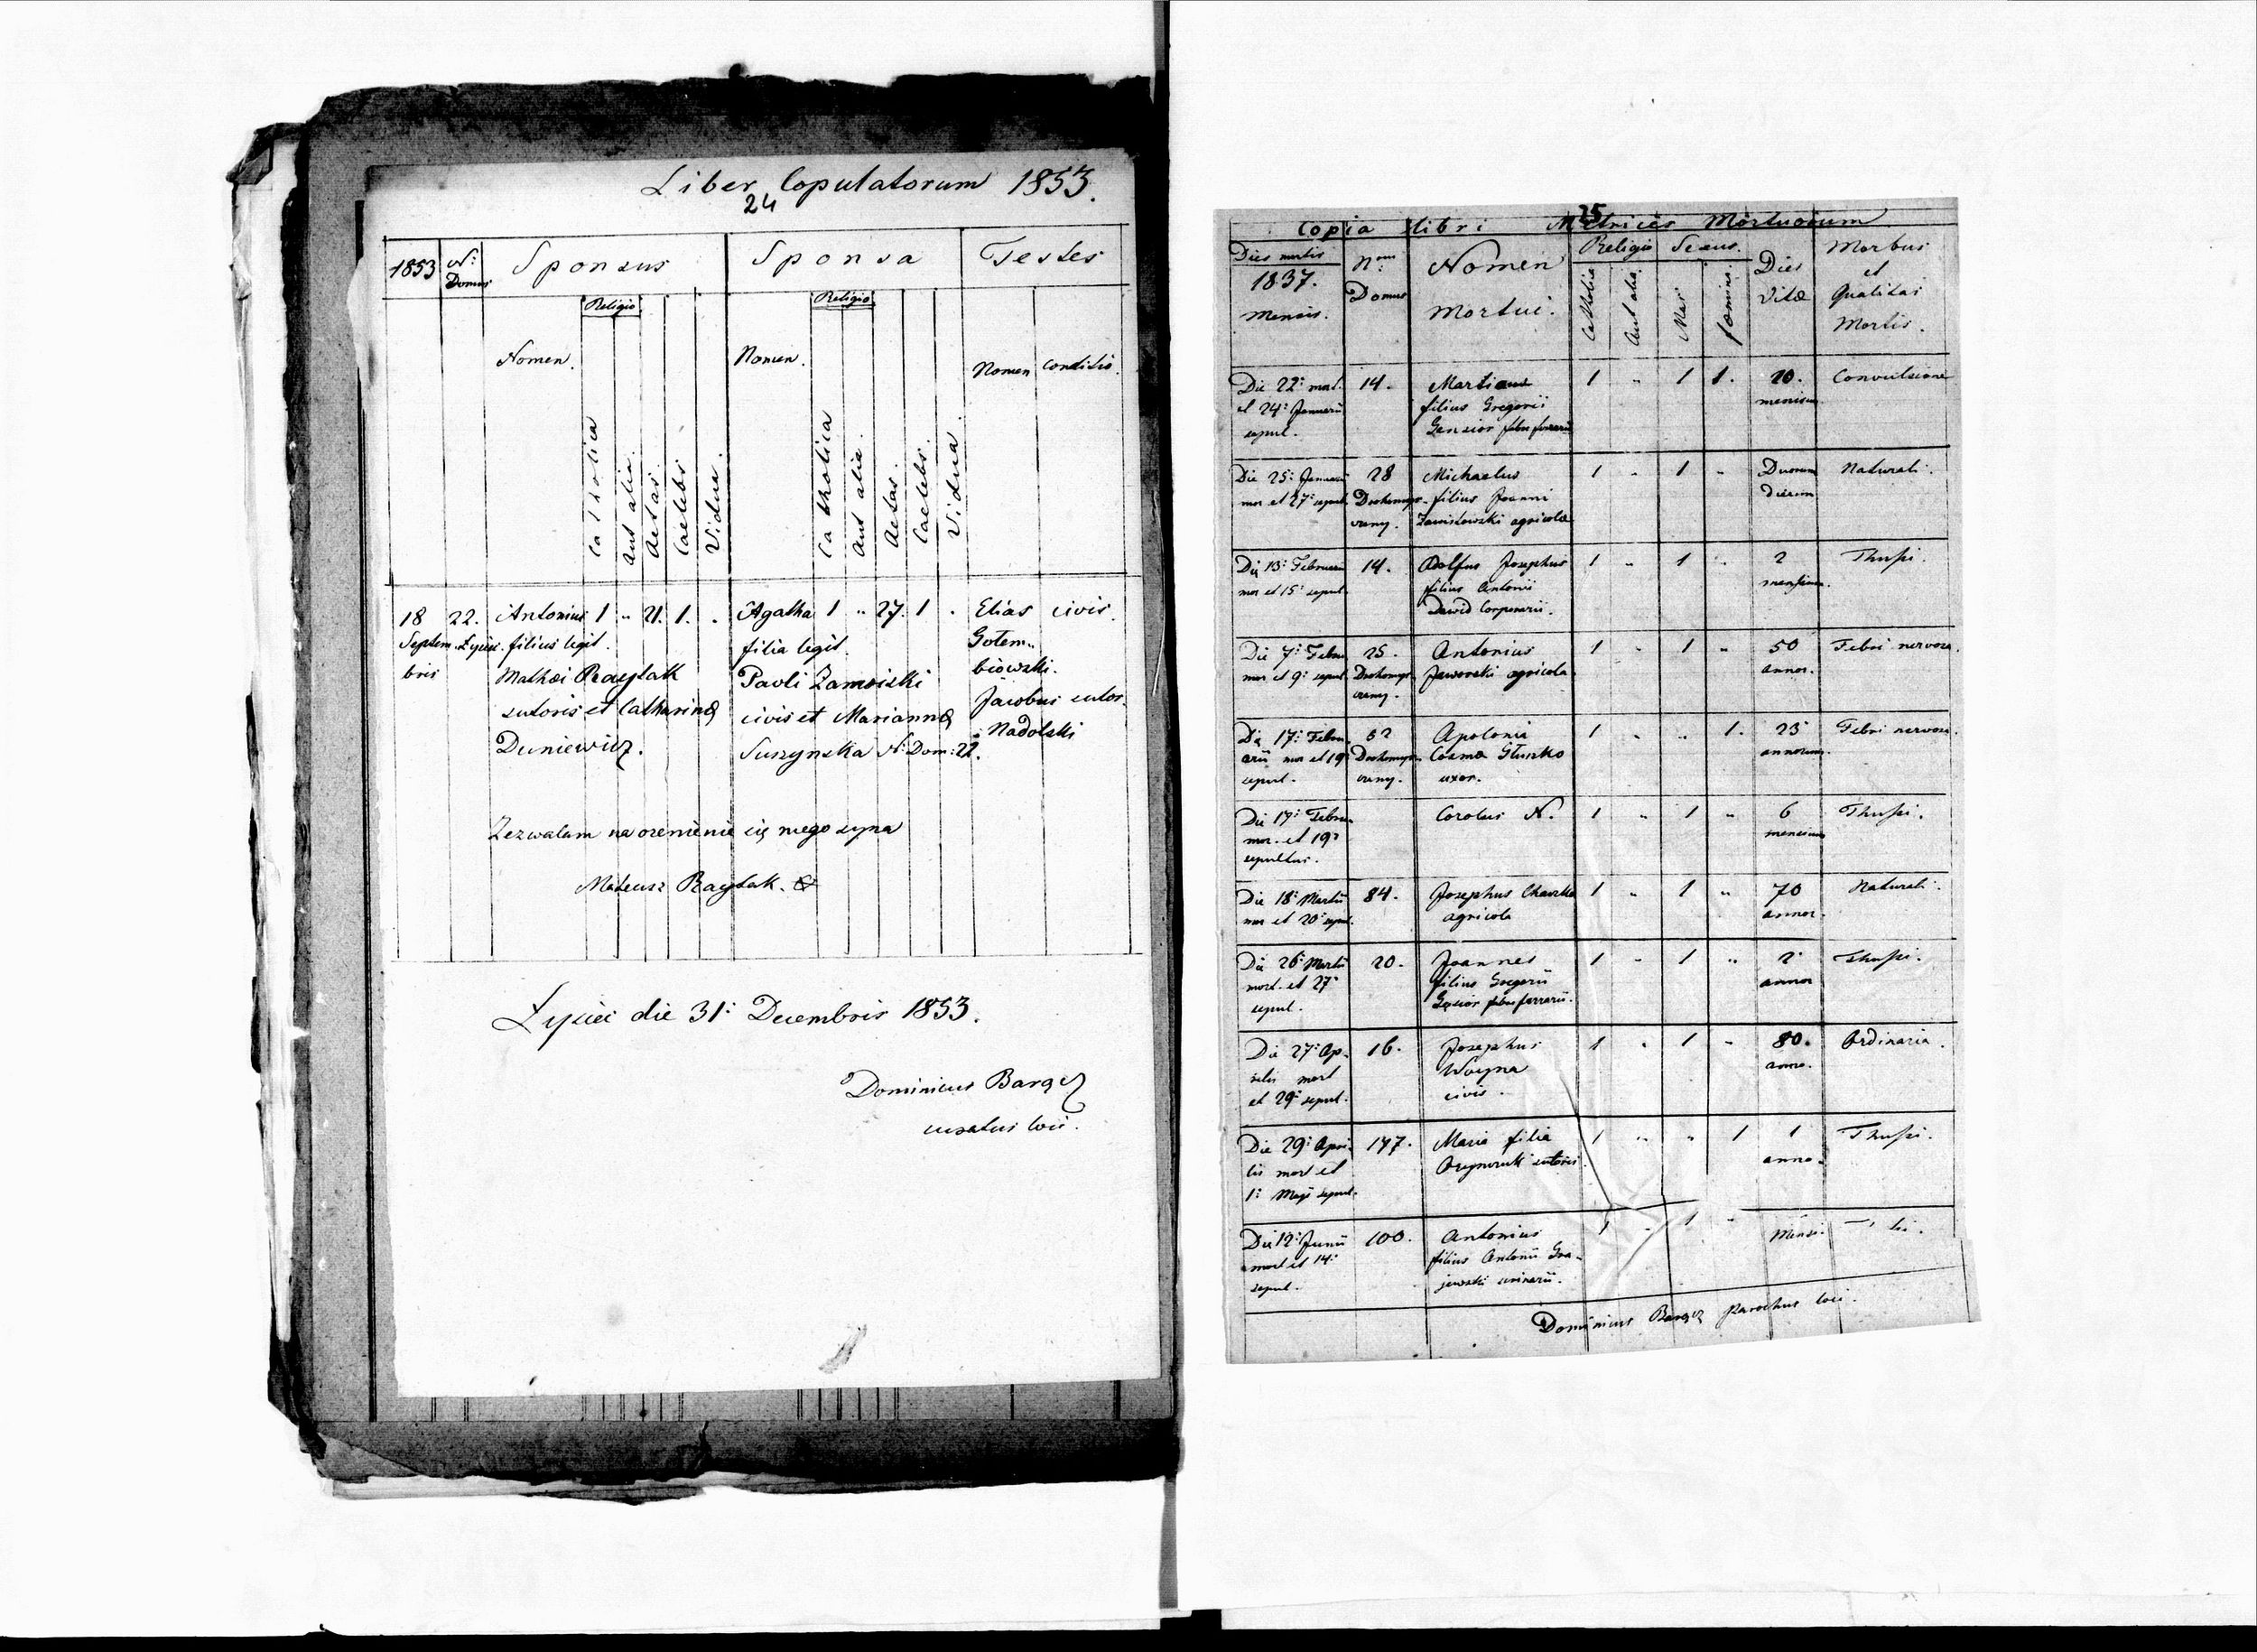 Liber Copulatorum 1853.
24
1853 N: Domus Sponsus Sponsa Testes
Religio Religio
Nomen. Nomen. Nomen conditio.
Catholica Aut alia. Aetas. Caelebs Vidua. Catholica Aut alia. Aetas. Caelebs. Vidua.
18 22. Antonius 1 " 21. 1. . Agatha 1 " 27. 1 . Elias civis.
Septem Łyściec. filius legit. filia legit. Gołem
bris Mathæi Raytak Pavli Zamoiski biowski.
sutoris et Catharinæ civis et Mariannæ Jacobus sutor.
Duniewicz. Suszynska N: Dom: 22. Nadolski
Zezwalam na ozenienie się mego syna
Mateusz Raytak.
Łyściec die 31: Decembris 1853.
Dominicus Barącz
curatus loci.
25
Copia libri Metrices Mortuorum
Dies mortis 1837. mensis. Nrus Domus Nomen Mortui. Religio Sexus. Dies Vitæ Morbus et Qualitas Mortis.
Catholica Aut alia. Mas fæmina.
Die 22: mort. 14. Martianus 1 " 1 1. 10. Convulsione
et 24: Januarii filius Gregorii mensium
sepul. Gensior fabri ferrarii
Die 25: Januarii 28 Michaelus 1 " 1 " Duorum Naturali.
mor et 27: sepul. filius Joanni dierum
Zawistowski agricolæ
Die 13: Februarii 14. Adolfus Josephus 1 " 1 " 2 Thussi.
mor et 15: sepul. filius Antonii mensium.
Dawid Corporarii.
Die 7: Febru. 25. Antonius 1 " 1 " 50 Febri nervosa.
mor et 9: sepul. Jaworski agricola annor.
Die 17: Febru 52 Apolonia 1 " " 1. 25 Febri nervosa.
arii mor et 19 Cosmæ Głuszko annorum.
sepul. uxor.
Die 17: Febru. Carolus N. 1 " 1 " 6 Thussi.
mor. et 19: mensium
sepultus.
Die 18: Martii 84. Josephus 1 " 1 " 70 Naturali.
mor et 20: sepul. agricola annor.
Die 26: Martii 20. Joannes 1 " 1 " 2 Thussi.
mort. et 27: filius Gregorii annor
sepul. Gęsior fabri ferrarii.
Die 27: Ap- 16. Josephus 1 " 1 " 80. Ordinaria.
rilis mort Woyna anno.
et 29: sepul. civis.
Die 29: Apri- 147. Maria filia 1 " " 1 1 Thussi.
lis mort et sutoris anno.
1: Maji sepul.
Die 12: Junii 100. Antonius 1 " 1 "
mort et 14: filius Antonii Gra-
sepul. jewski
Dominicus Barącz Parochus loci.